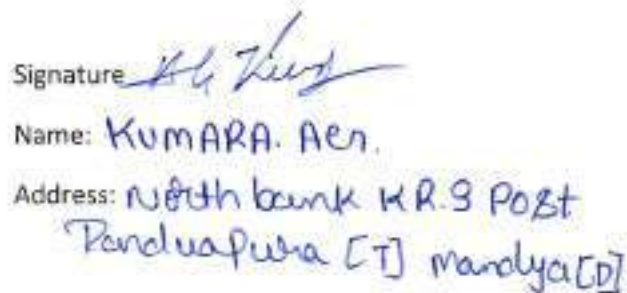 Signature
Name: KUMARA.
Address: North bank KR.S Post
Panduapura [T] Mandya [D]